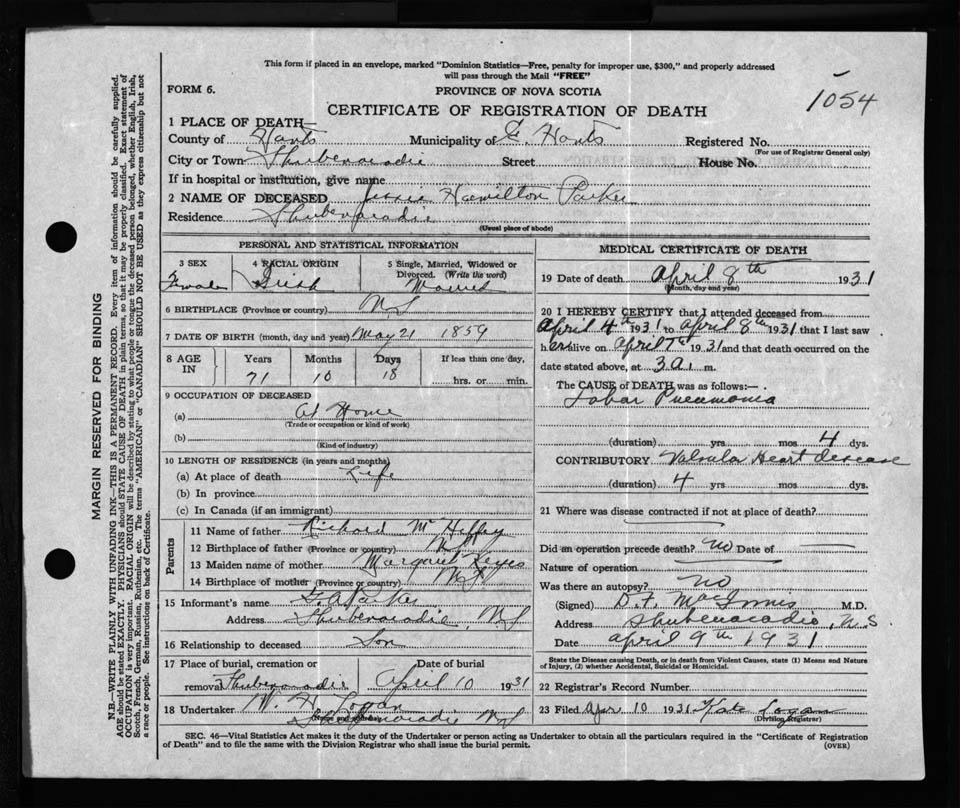 This form if placed in an envelope, marked "Dominion Statistics—Free, penalty for improper use, $300," and properly addressed
will pass through the Mail "FREE"
FORM 6.
PROVINCE OF NOVA SCOTIA
1054
CERTIFICATE OF REGISTRATION OF DEATH
1 PLACE OF DEATH—
County of Hants Municipality of E. Hants Registered No.
(For use of Registrar General only)
City or Town Shubenacadie Street House No.
If in hospital or institution, give name
2 NAME OF DECEASED Hamilton Parker
Residence Shubenacadie
(Usual place of abode)
PERSONAL AND STATISTICAL INFORMATION
3 SEX 4 RACIAL ORIGIN 5 Single, Married, Widowed or
Divorced. (Write the word)
Female Irish Married
6 BIRTHPLACE (Province or country) NS
7 DATE OF BIRTH (month, day and year) May 21 1859
8 AGE IN Years Months Days If less than one day,
71 10 18 hrs. or min.
9 OCCUPATION OF DECEASED
(a) At Home
(Trade or occupation or kind of work)
(b)
(Kind of industry)
10 LENGTH OF RESIDENCE (in years and months)
(a) At place of death Life
(b) In province
(c) In Canada (if an immigrant)
Parents
11 Name of father Richard Mc Heffey
12 Birthplace of father (Province or country) NS
13 Maiden name of mother Margaret
14 Birthplace of mother (Province or country) NS
15 Informant's name G. A Parker
Address Shubenacadie, NS
16 Relationship to deceased Son
17 Place of burial, cremation or Date of burial
removal Shubenacadie April 10 1931
18 Undertaker W. H. Logan
Shubenacadie NS
MEDICAL CERTIFICATE OF DEATH
19 Date of death April 8th 1931
(Month, day and year)
20 I HEREBY CERTIFY that I attended deceased from
April 4th 1931 to April 8th 1931 that I last saw
her alive on April 7th 1931 and that death occurred on the
date stated above, at 3 a.m.
The CAUSE of DEATH was as follows:—
Lobar Pneumonia
(duration) yrs mos 4 dys.
CONTRIBUTORY Valvular Heart disease
(duration) 4 yrs. mos. dys.
21 Where was disease contracted if not at place of death?
Did an operation precede death? no Date of
Nature of operation
Was there an autopsy? no
(Signed) D. F. MacInnis M.D.
Address Shubenacadie, N.S
Date April 9th 1931
State the Disease causing Death, or in death from Violent Causes, state (1) Means and Nature
of Injury, (2) whether Accidental, Suicidal or Homicidal.
22 Registrar's Record Number
23 Filed Apr 10 1931 Kate Logan
(Division Registrar)
SEC. 46—Vital Statistics Act makes it the duty of the Undertaker or person acting as Undertaker to obtain all the particulars required in the "Certificate of Registration
of Death" and to file the same with the Division Registrar who shall issue the burial permit.
(OVER)
MARGIN RESERVED FOR BINDING
N.B.—WRITE PLAINLY WITH UNFADING INK—THIS IS A PERMANENT RECORD. Every item of information should be carefully supplied.
AGE should be stated EXACTLY. PHYSICIANS should STATE CAUSE OF DEATH in plain terms, so that it may be properly classified. Exact statement of
OCCUPATION is very important. RACIAL ORIGIN will be described by stating to what people or tongue the deceased person belonged, whether English, Irish,
Scotch, French, German, Russian, Ruthenian, etc. The terms "AMERICAN" or "CANADIAN" SHOULD NOT BE USED as they express citizenship but not
a race or people. See instructions on back of Certificate.